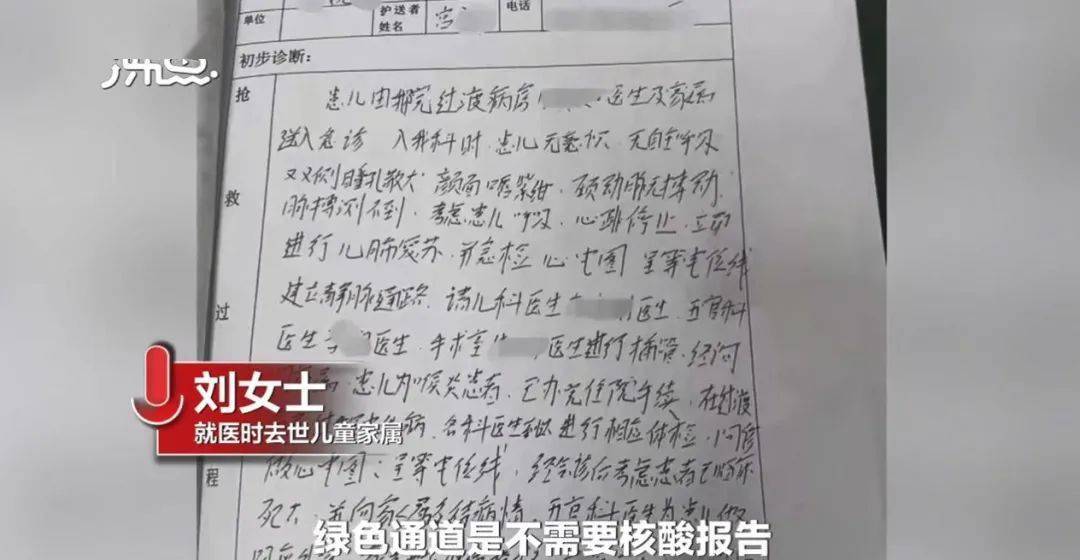 单位
护送者
姓名
宫
电话
初步诊断：
抢
救
过
程
患儿由我院过渡病房 医生及家属
送入急诊 入我科时，患儿无意识，无自主呼吸
双侧瞳孔散大 颜面口唇紫绀，颈动脉无搏动，
脉搏测不到，考虑患儿呼吸、心跳停止，立即
进行心肺复苏，并急检心电图 呈等电位线
建立静脉通路，请儿科医生 医生，五官科
医生 医生，手术室 医生进行插管，经询
患儿为喉炎患者，已办完住院手续，在过渡
病，各科医生 进行相应体检，
做心电图：呈等电位线，经 后考虑患者已临床
死亡，并向家属交待病情，五官科医生为患儿做
刘女士
就医时去世儿童家属
绿色通道是不需要核酸报告